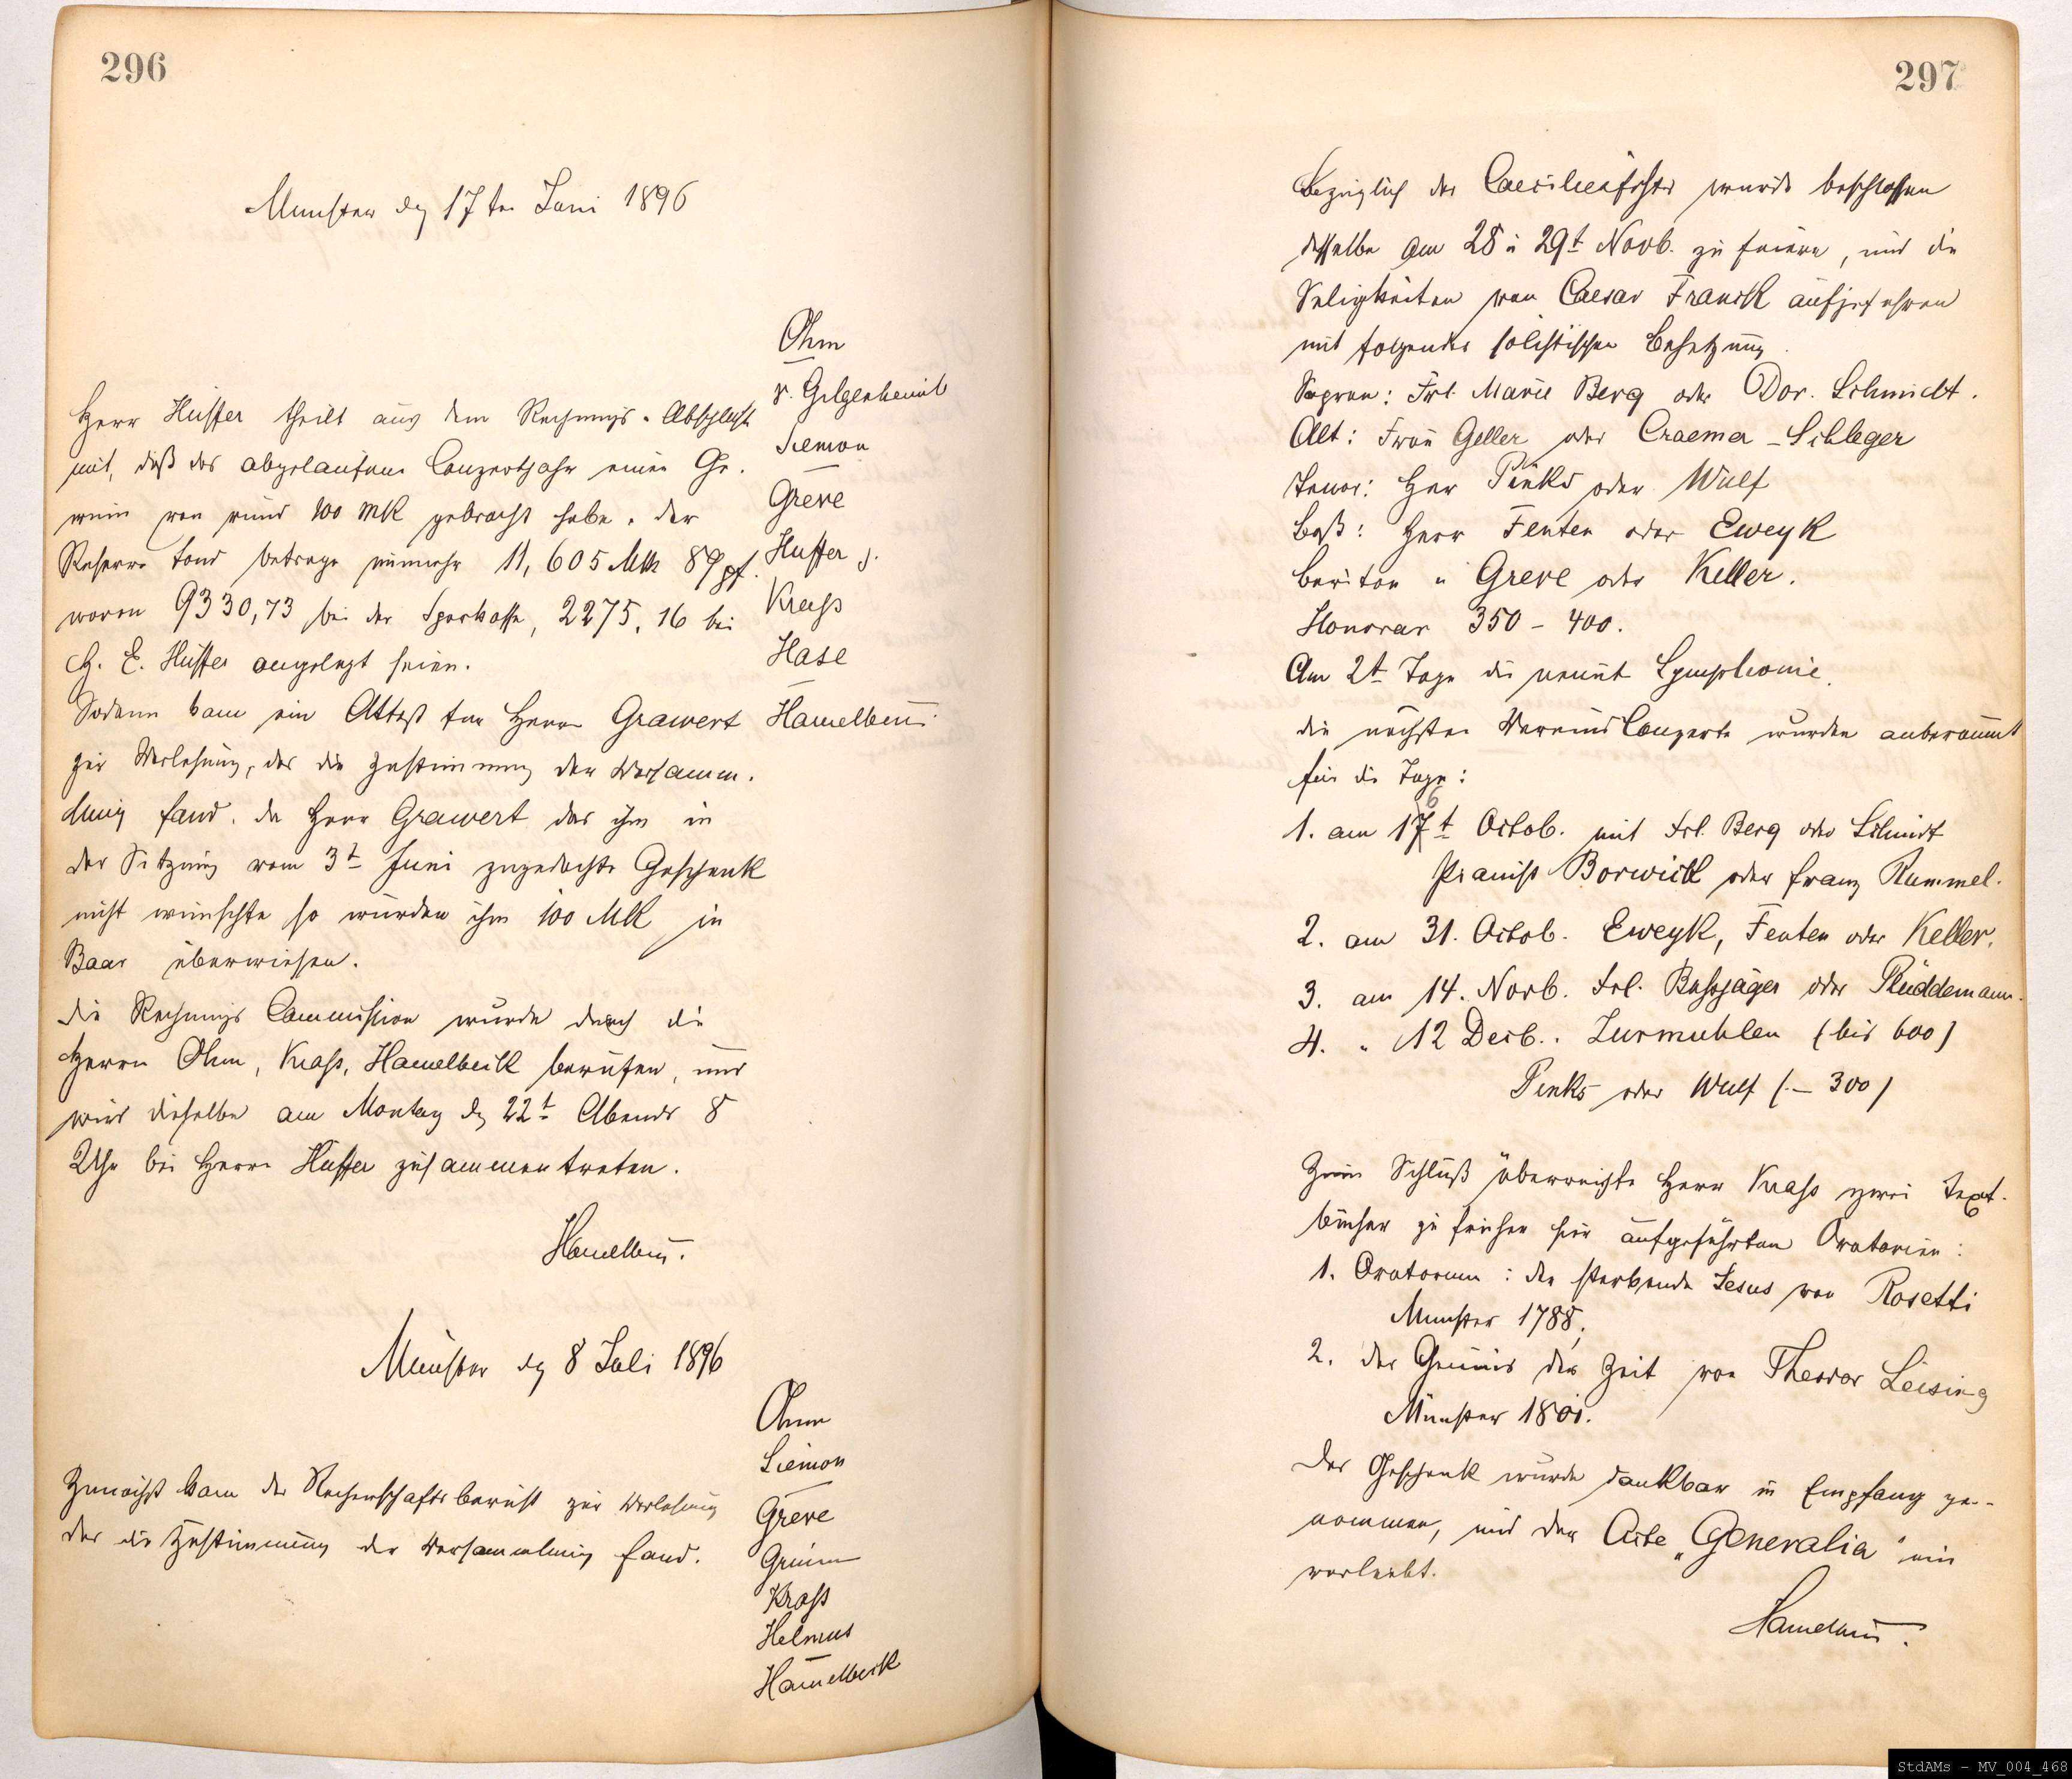 296
Munster dn 17ten Juni 1896
Ohm
v. Gilgenheimb
Siemon
Greve
Huffer j.
Krass
Hase
Hamelbeck
Herr Hüffer theilt aus dem Rechnungs-Abschluß
mit, daß das abgelaufene Conzertjahr einen Ge-
winn von rund 100 MK gebracht habe. der
Reserve fond betrage nunmehr 11,605 Mk 89 pf.
wovon 9330,73 bei der Sparkasse, 2275,16 bei
H. E. Hüffer angelegt seien.
Sodann kam ein Attest für Herrn Grawert
zur Verlesung, das die Zustimmung der Versamm-
lung fand. da Herr Grawert das ihm in
der Sitzung vom 3t Juni zugedachte Geschenk
nicht wünschte so wurden ihm 100 MK in
Baar überwiesen.
die Rechnungs Commission wurde durch die
Herrn Ohm, Krass, Hamelbeck berufen, und
wird dieselbe am Montag dn 22t Abends 8
Uhr bei Herrn Hüffer zusammentreten.
Hamelbeck.
Münster dn 8 Juli 1896
Ohm
Siemon
Greve
Grimm
Krass
Helmus
Hamelbeck
Zunächst kam der Rechenschaftsbericht zur Verlesung
der die Zustimmung der Versammlung fand.
297
Bezüglich des Caecilienfestes wurde beschlossen
dasselbe am 28 u 29t Novb. zu feiern, und die
Seligkeiten von Caesar Franck aufzuführen
mit folgender solistischen Besetzung
Sopran: Frl. Marie Berg oder Dor. Schmidt.
Alt: Frau Geller oder Craemer-Schleger
Tenor: Herr Pinks oder Wulf
Baß: Herr Fenten oder Eweyk
Bariton " Greve oder Keller.
Honorar 350 - 400.
Am 2t Tage die neunt Symphonie.
die nächsten VereinsConzerte wurden anberaumt
für die Tage:
1. am 17t Octob. mit Frl. Berg oder Schmidt
Pianist Borwick oder Franz Rummel.
2. am 31. Octob. Eweyk, Fenten oder Keller.
3. am 14. Novb. Frl. Bussjäger oder Plüddemann.
4. " 12 Decb.. Zurmuhlen (bis 600)
Pinks oder Wulf (- 300)
Zum Schluß überreichte Herr Krass zwei Text-
bücher zu früher hier aufgeführten Oratorien:
1. Oratorium: der sterbende Jesus von Rosetti
Munster 1788;
2. der Genius der Zeit von Theodor Leising
Münster 1801.
Das Geschenk wurde dankbar in Empfang ge-
nommen, und der Acte "Generalia" ein
verleibt.
Hamelbeck.
StdAMs - MV_004_468